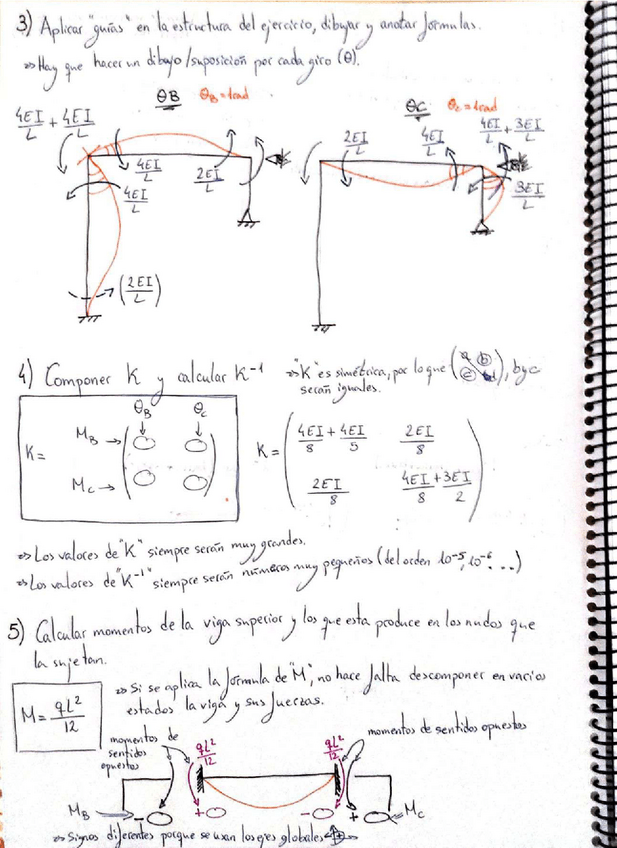 3) Aplicar "guías" en la estructura del ejercicio, dibujar y anotar fórmulas.
⇒ Hay que hacer un dibujo/suposición por cada giro (θ).
θB θB = 1rad
θC θc = 1rad
4EI/L + 4EI/L
4EI/L
4EI/L
2EI/L
(2EI/L)
2EI/L
4EI/L
4EI/L + 3EI/L
3EI/L
4) Componer K y calcular K⁻¹ ⇒ "K" es simétrica, por lo que (a b c d), b y c
serán iguales.
θB θc
K = MB →
Mc →
K = ( 4EI/8 + 4EI/5 2EI/8
2EI/8 4EI/8 + 3EI/2 )
⇒ Los valores de "K" siempre serán muy grandes.
⇒ Los valores de "K⁻¹" siempre serán números muy pequeños (del orden 10⁻⁵, 10⁻⁶...)
5) Calcular momentos de la viga superior y los que esta produce en los nudos que
la sujetan.
M = qL²/12
⇒ Si se aplica la fórmula de "M", no hace falta descomponer en varios
estados la viga y sus fuerzas.
momentos de
sentidos
opuestos
qL²/12
qL²/12
momentos de sentidos opuestos
MB - + - + Mc
⇒ Signos diferentes porque se usan los ejes globales